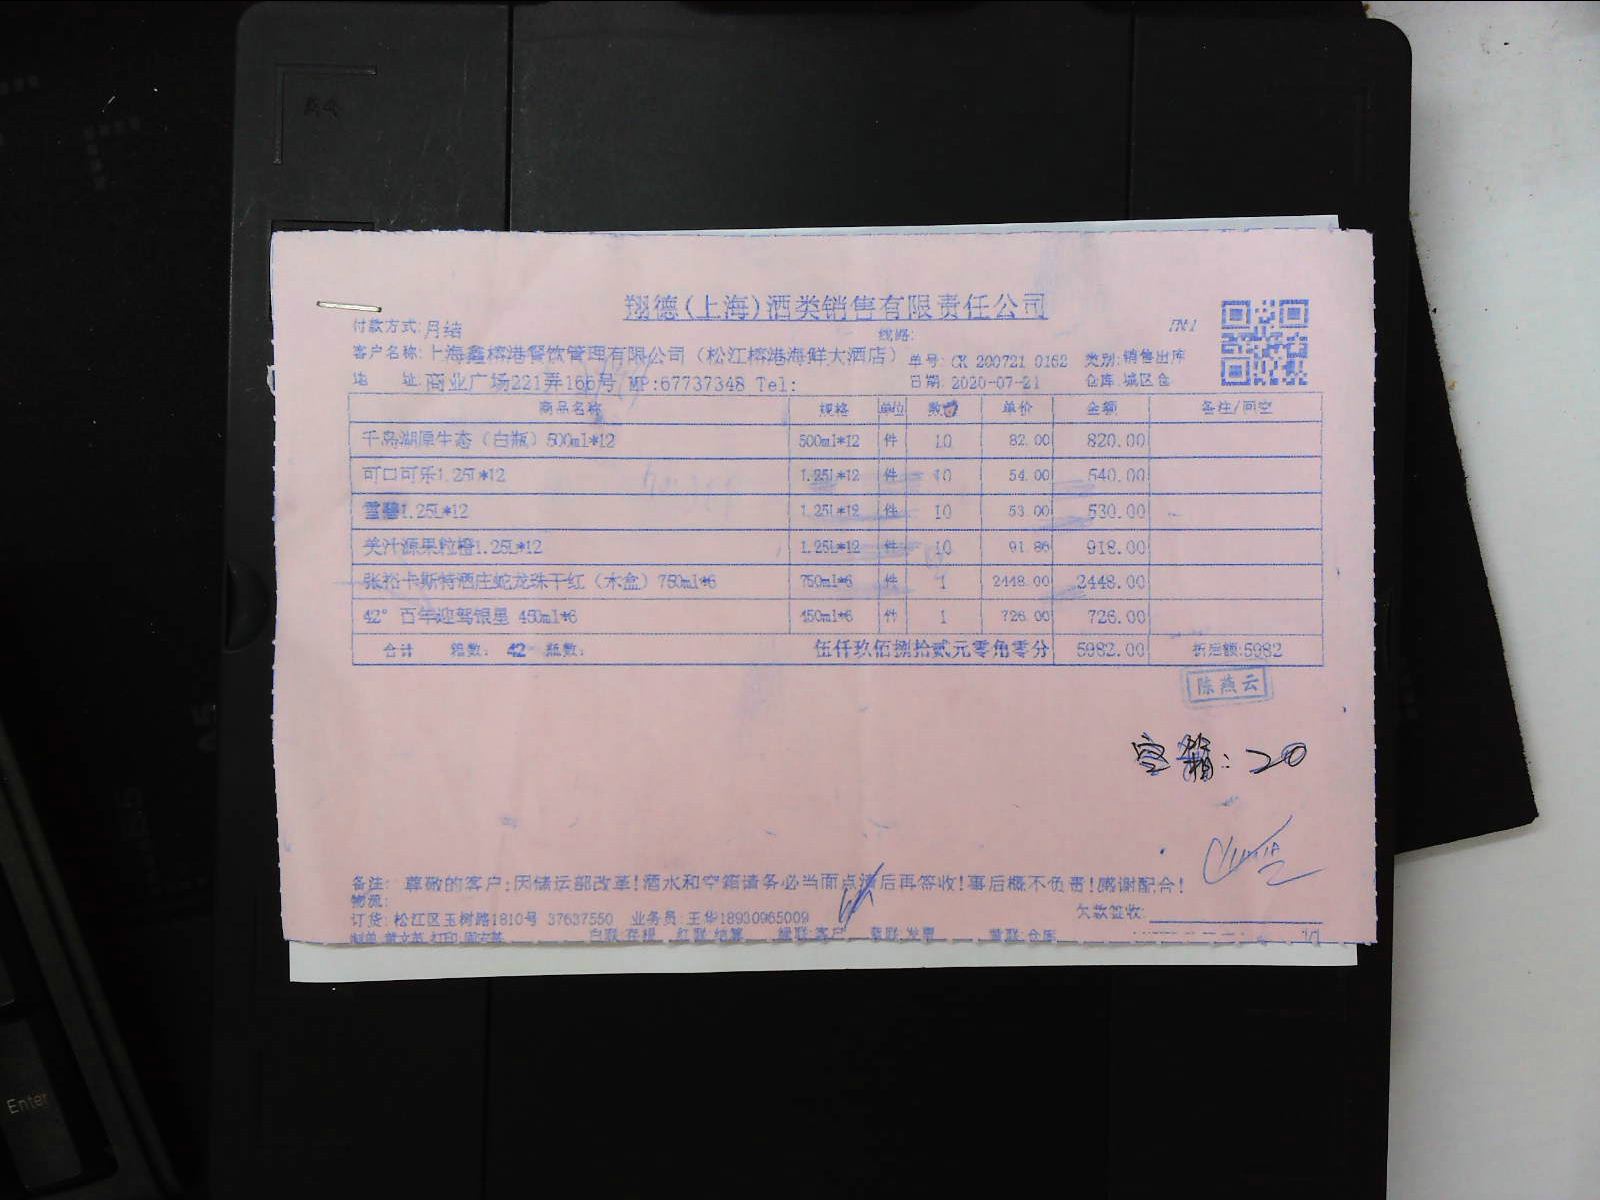 翔德(上海)酒类销售有限责任公司
付款方式:月结 线路:
客户名称:上海鑫榕港餐饮管理有限公司（松江榕港海鲜大酒店） 单号: CK 200721 0162 类别:销售出库
地 址:商业广场221弄166号 MP:67737348 Tel: 日期:2020-07-21 仓库:城区仓
商品名称 规格 单位 数 单价 金额 备注/回空
千岛湖原生态（白瓶）500ml*12 500ml*12 件 10 82.00 820.00
可口可乐1.25l*12 1.25l*12 件 10 54.00 540.00
雪碧1.25L*12 1.25l*12 件 10 53.00 530.00
美汁源果粒橙1.25L*12 1.25L*12 件 10 91.80 918.00
张裕卡斯特酒庄蛇龙珠干红（木盒）750ml*6 750ml*6 件 1 2448.00 2448.00
42° 百年迎驾银星 450ml*6 450ml*6 件 1 726.00 726.00
合计 箱数: 42 瓶数: 伍仟玖佰捌拾贰元零角零分 5982.00 折后额:5982
陈燕云
空箱: 20
备注: 尊敬的客户:因储运部改革!酒水和空箱请务必当面点清后再签收!事后概不负责!感谢配合!
物流:
订货:松江区玉树路1810号 37637550 业务员:王华18930965009 欠款签收:
白联:存根 红联:结算 绿联:客户 蓝联:发票 黄联:仓库 1/1
Enter